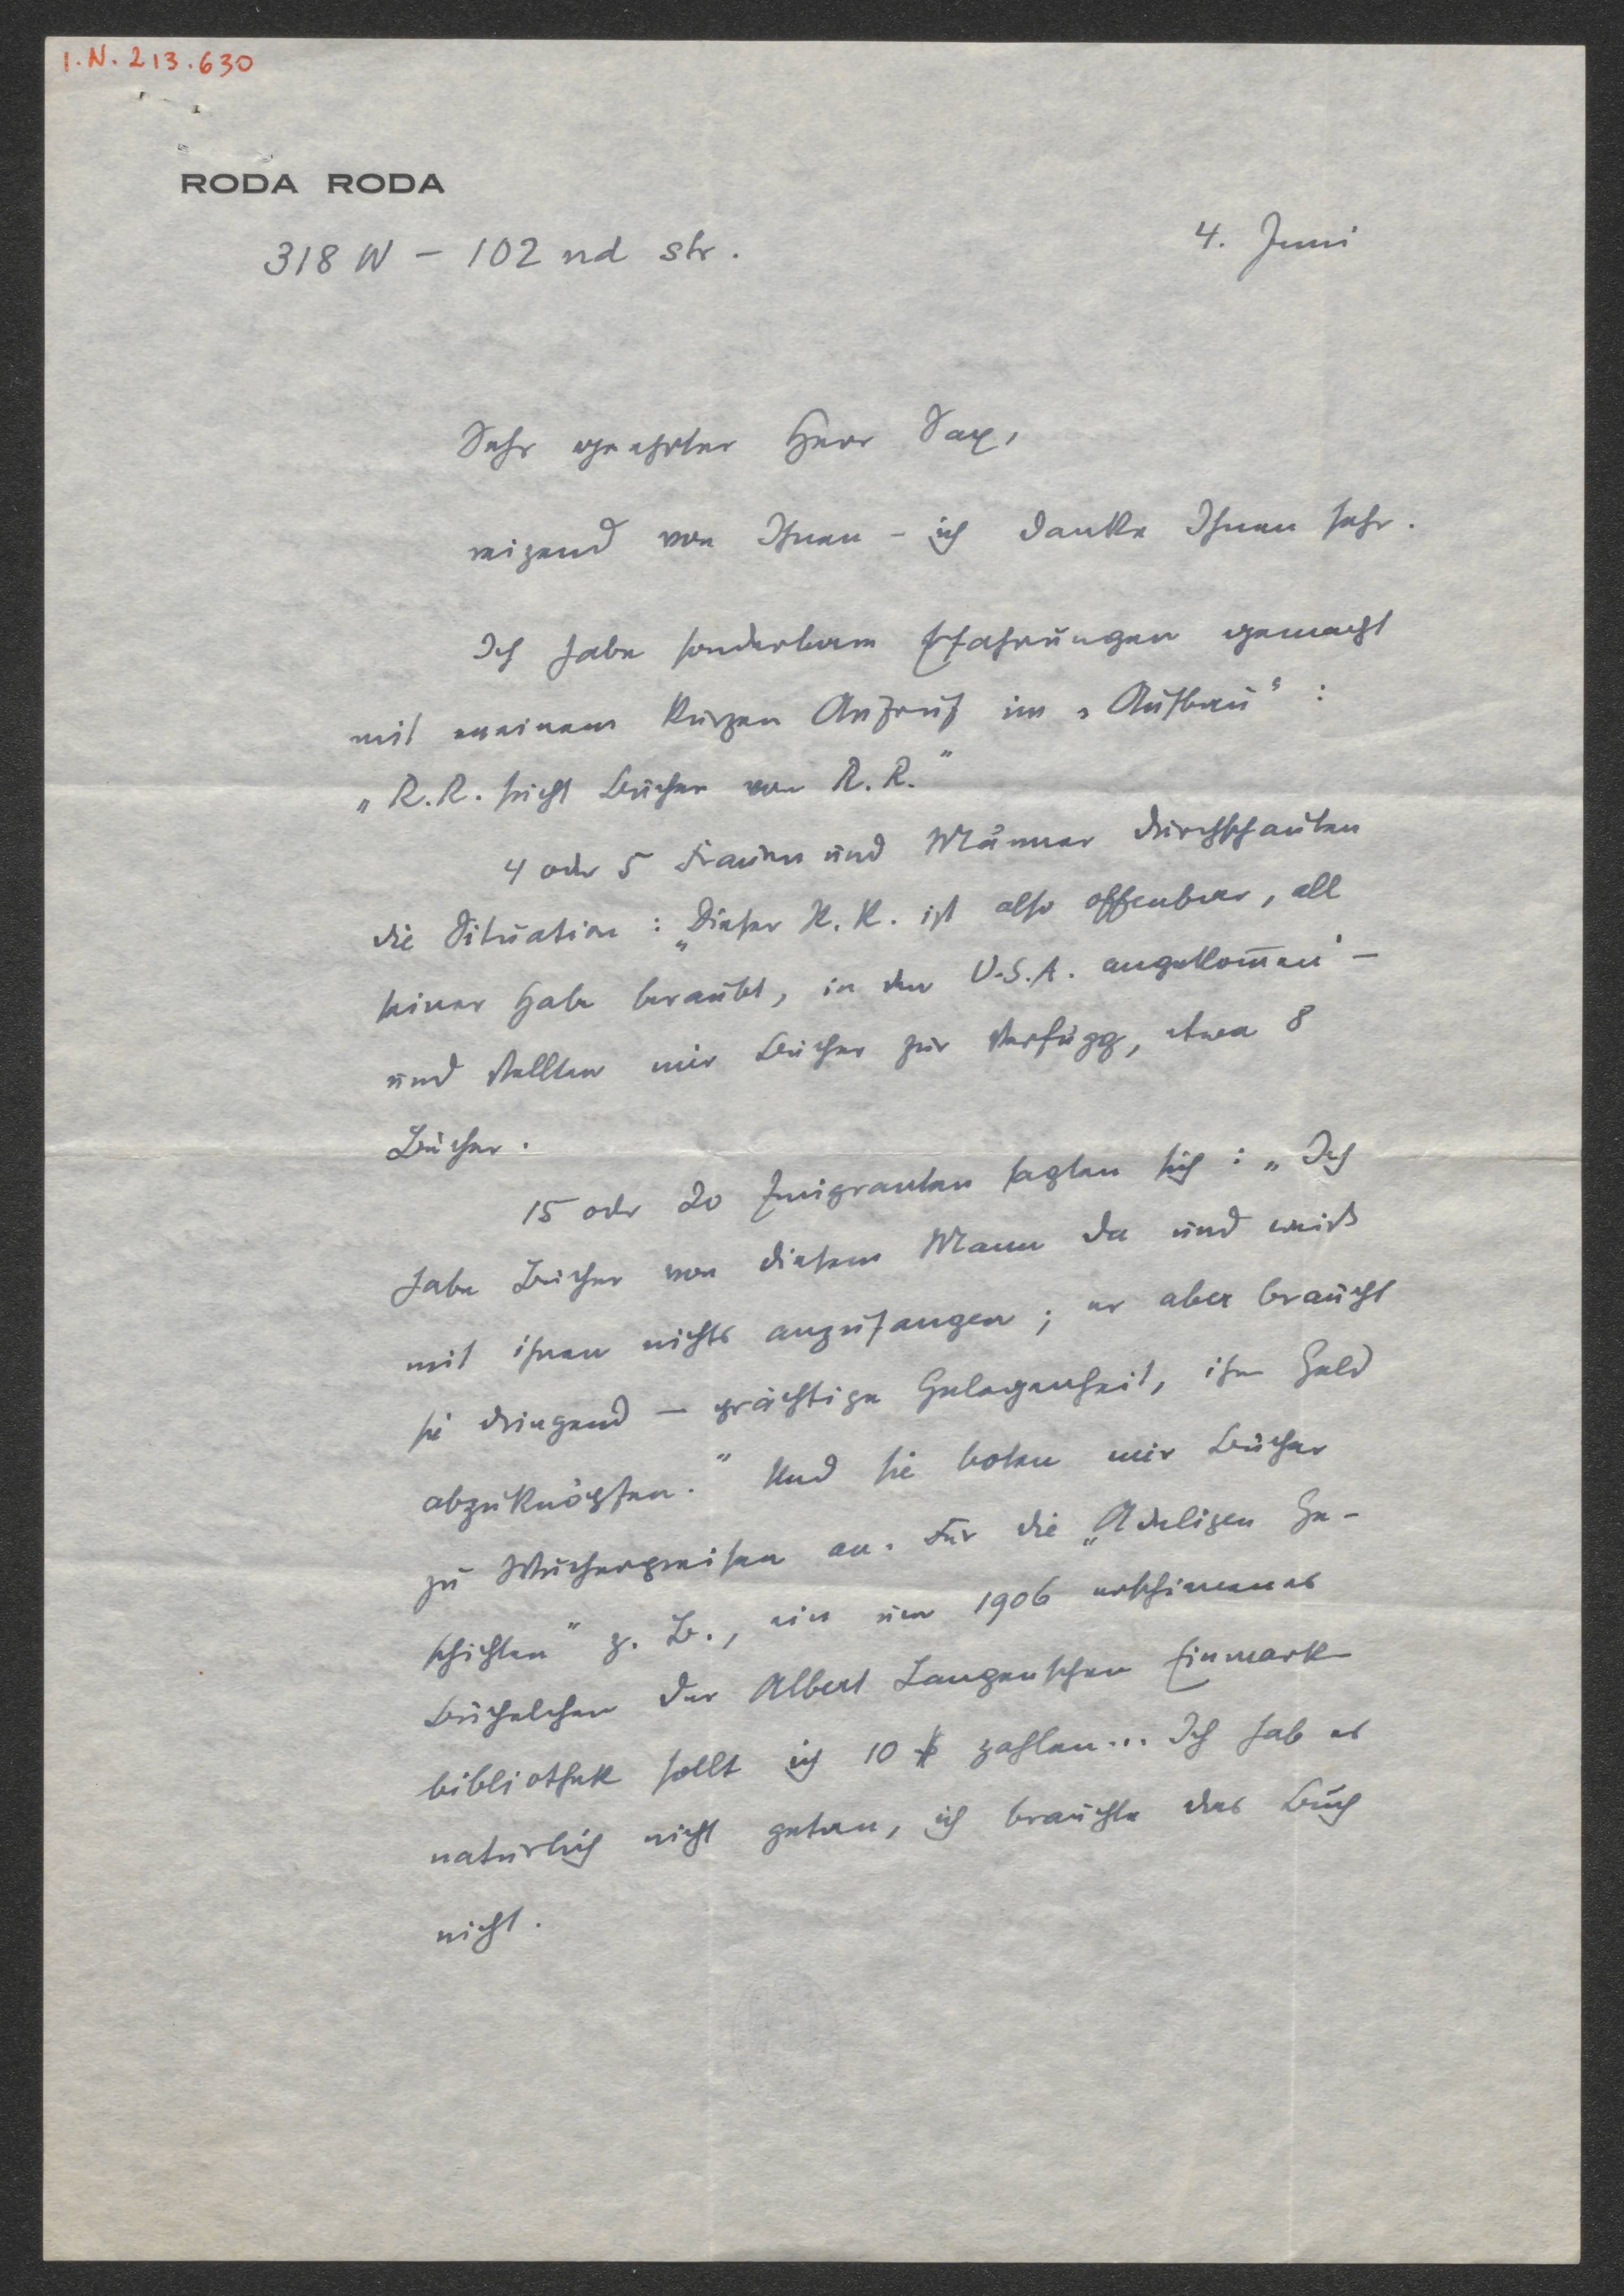 I.N. 213.630
RODA RODA
318 W – 102 nd str.
4. Juni
Sehr geehrter Herr Sax,
reizend von Ihnen – ich danke Ihnen sehr.
Ich habe sonderbare Erfahrungen gemacht
mit meinem kurzen Anzruf im „Aufbau“ :
„R.R. sucht Bücher von R.R.“
4 oder 5 Frauen und Männer durchschauten
die Situation : „Dieser R.R. ist also offenbar, all
seiner Habe beraubt, in den U.S.A. angekom̅en‘ –
und stellten mir Bücher zur Verfügg, etwa 8
Bücher.
15 oder 20 Emigranten sagten sich : „Ich
habe Bücher von diesem Mann da und weiß
mit ihnen nichts anzufangen ; er aber braucht
sie dringend – prächtige Gelegenheit, ihm Geld
abzuknöpfen.“ Und sie boten mir Bücher
zu Wucherpreisen an. Für die „Adeligen Ge-
schichten“ z. B., ein um 1906 erschienenes
Büchelchen der Albert Langenschen Einmark-
bibliothek sollt ich 10 $ zahlen... Ich hab es
natürlich nicht getan, ich brauchte das Buch
nicht.